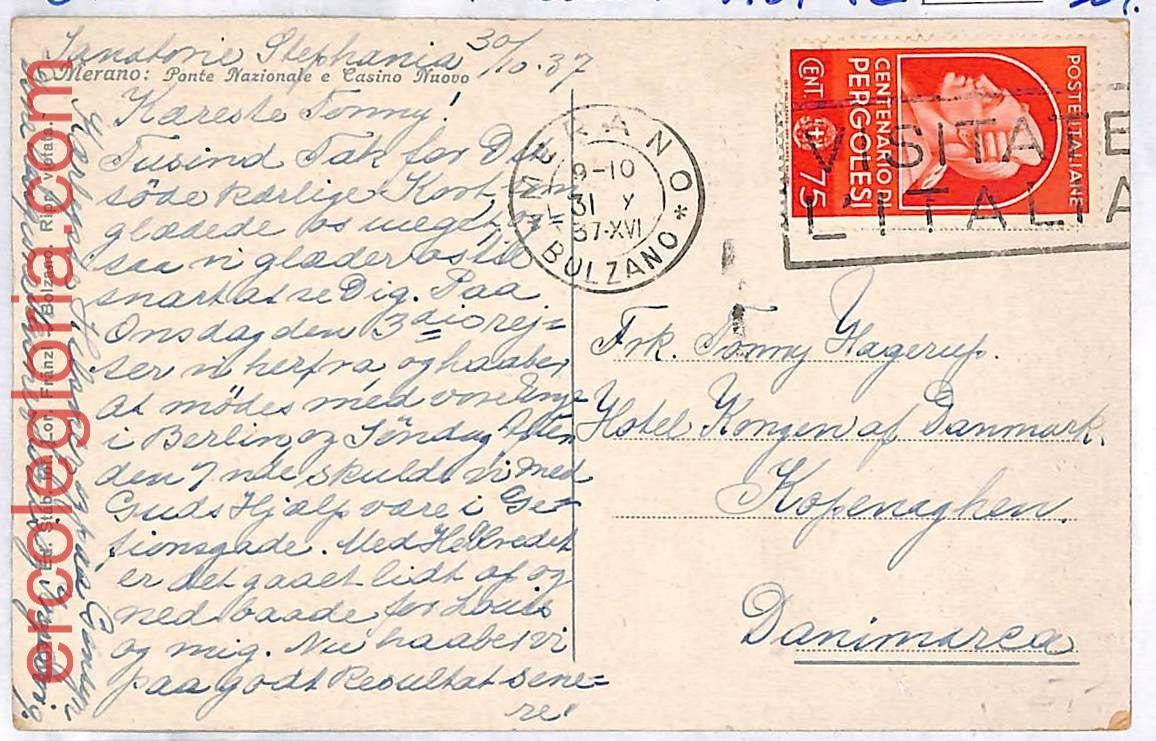 Sanatorie Stephania 30/10.37
Merano: Ponte Nazionale e Casino Nuovo
Kæreste Tonny!
Tusind Tak for Dit
söde kærlige Kort, som
glædede os meget, og
saa vi glæder os til
snart at se Dig. Paa
Onsdag den 3die rej=
ser vi herfra og haaber
at mödes med vore
i Berlin og Söndag Aften
den 7nde skulde vi med
Guds Hjælp være i Ge=
fionsgade. Med Helbredet
er det gaaet lidt op og
ned baade for Louis
og mig. Nu haaber vi
paa godt Resultat sene=
re!
MERANO
BOLZANO *
9-10
31 X
37-XVI
VISITATE
L'ITALIA
POSTE ITALIANE
CENTENARIO DI
PERGOLESI
CENT. 75
Frk. Tonny Hagerup.
Hotel Kongen af Danmark.
Kopenaghen.
Danimarca
Ed. Stab. Lor. Fränzl - Bolzano. Rip. vietata.
ercolegloria.com